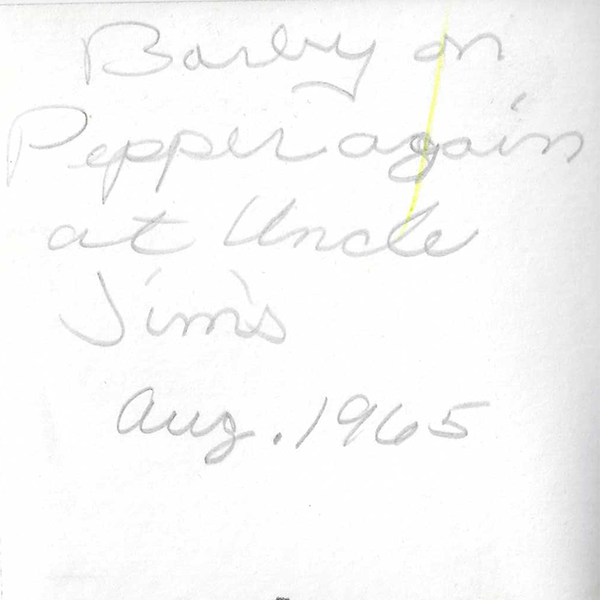 Barby on
Pepper again
at Uncle
Jim's
Aug. 1965